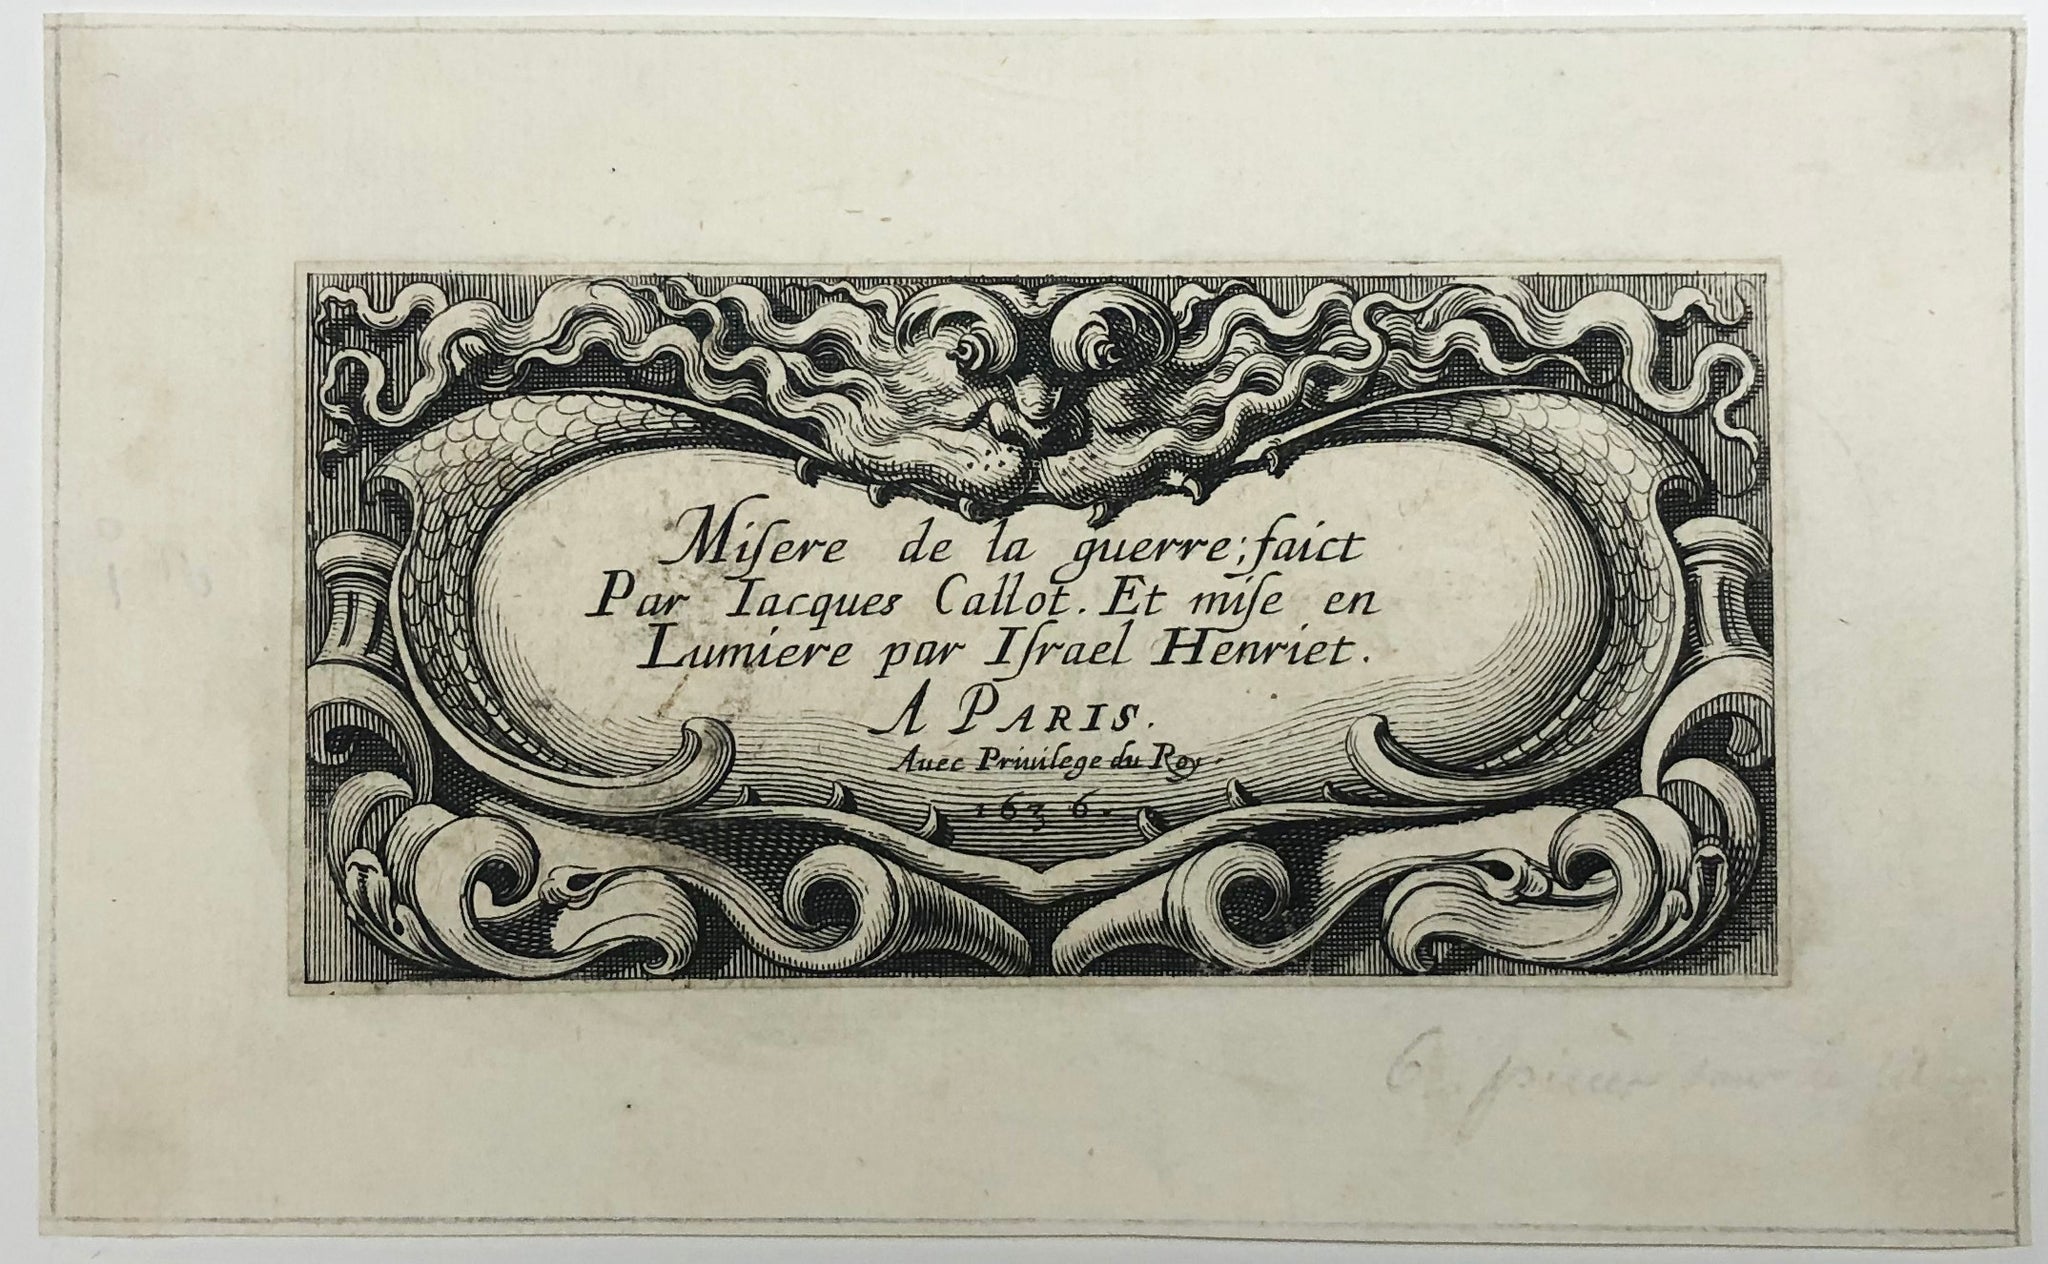 Miſere de la guerre; faict
Par Iacques Callot. Et miſe en
Lumiere par Iſrael Henriet.
A PARIS.
Auec Priuilege du Roy.
1636.
6 pièces